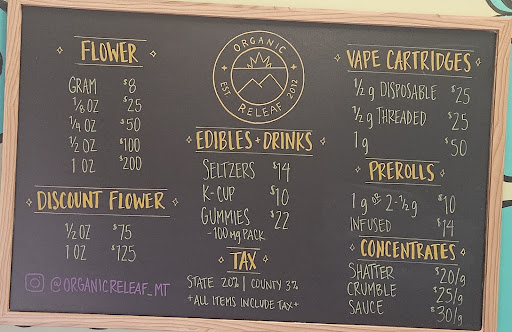 FLOWER
GRAM $8
1/8 OZ $25
1/4 OZ $50
1/2 OZ $100
1 OZ $200
DISCOUNT FLOWER
1/2 OZ $75
1 OZ $125
@ORGANICRELEAF_MT
ORGANIC
RELEAF
EST 2012
EDIBLES + DRINKS
SELTZERS $14
K-CUP $10
GUMMIES $22
-100 MG PACK
TAX
STATE 20% | COUNTY 3%
*ALL ITEMS INCLUDE TAX*
VAPE CARTRIDGES
1/2 g DISPOSABLE $25
1/2 g THREADED $25
1 g $50
PREROLLS
1 g OR 2-1/2g $10
INFUSED $14
CONCENTRATES
SHATTER $20/g
CRUMBLE $25/g
SAUCE $30/g